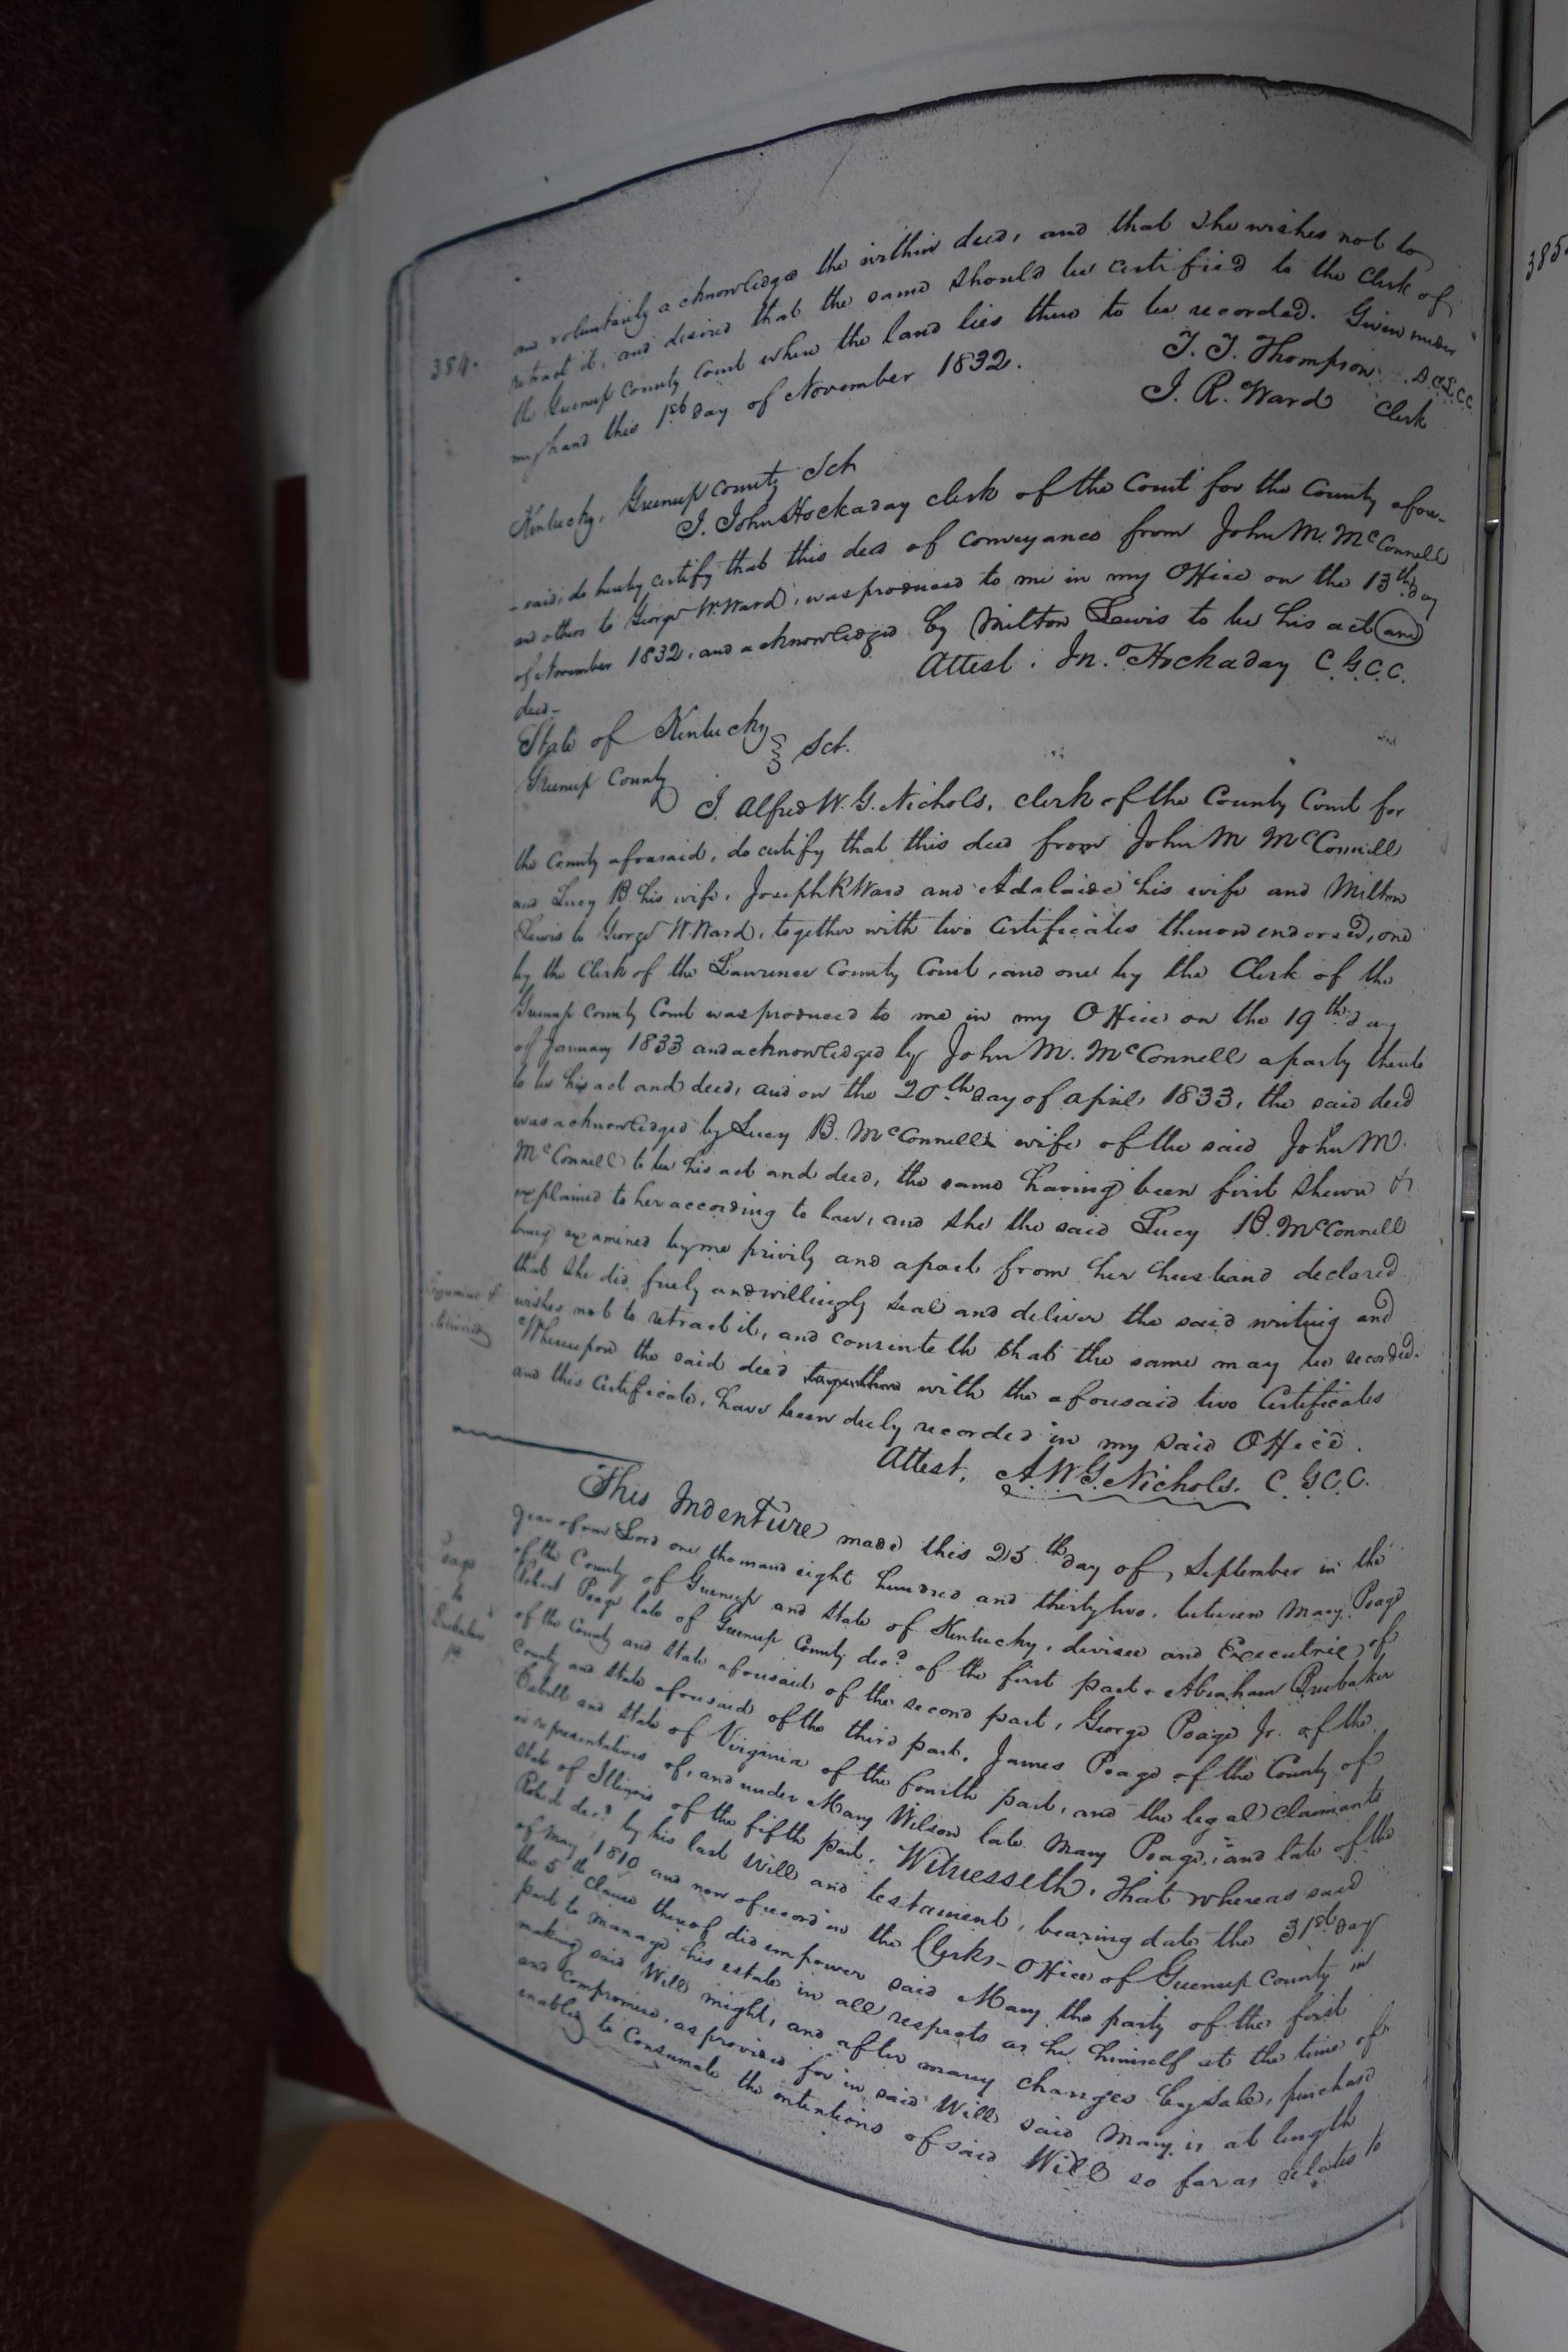 384.
385
and voluntarily acknowledged the within deed, and that she wishes not to
retract it, and desired that the same should be certified to the Clerk of
the Greenup County Court where the land lies there to be recorded. Given under
my hand this 1st day of November 1832.
T. T. Thompson D.C.L.C.C.
J. R. Ward Clerk
Kentucky, Greenup County Sct
I. John Hockaday clerk of the Court for the County afore-
-said, do hereby certify that this deed of conveyance from John M. McConnell
and others to George W. Ward, was produced to me in my Office on the 13th day
of November 1832, and acknowledged by Milton Lewis to be his act and
deed-
Attest. Jno. Hockaday C.G.C.C.
State of Kentucky
Greenup County } Sct.
I. Alfred W. G. Nichols, clerk of the County Court for
the County aforesaid, do certify that this deed from John M McConnell
and Lucy B his wife, Joseph R Ward and Adalaide his wife and Milton
Lewis to George W. Ward, together with two Certificates thereon endorsed, one
by the Clerk of the Lawrence County Court, and one by the Clerk of the
Greenup County Court was produced to me in my Office on the 19th day
of January 1833 and acknowledged by John M. McConnell a party thereto
to be his act and deed, and on the 20th day of April, 1833, the said deed
was acknowledged by Lucy B. McConnell wife of the said John M.
McConnell to be his act and deed, the same having been first shewn &
explained to her according to law, and she the said Lucy B. McConnell
being examined by me privily and apart from her husband declared
that she did freely and willingly seal and deliver the said writing and
wishes not to retract it, and consenteth that the same may be recorded.
Examined &
delivered
Whereupon the said deed together with the aforesaid two Certificates
and this Certificate, have been duly recorded in my said Office.
Attest, A. W. G. Nichols. C.G.C.C.
This Indenture made this 25th day of September in the
year of our Lord one thousand eight hundred and thirty two, between Mary Poage
of the County of Greenup and State of Kentucky, devisee and Executrix of
Robert Poage late of Greenup County decd. of the first part, Abraham Brubaker
of the County and State aforesaid of the second part, George Poage Jr. of the
County and State aforesaid of the third part, James Poage of the County of
Cabell and State of Virginia of the fourth part, and the legal claimants
or representatives of, and under Mary Wilson late Mary Poage, and late of the
State of Illinois of the fifth part. Witnesseth, That whereas said
Robert decd. by his last Will and testament, bearing date the 31st day
of May 1810 and now of record in the Clerks-Office of Greenup County in
the 5th clause thereof did empower said Mary the party of the first
part to manage his estate in all respects as he himself at the time of
making said Will might, and after many changes by sale, purchase
and compromise, as provided for in said Will said Mary is at length
enabled to consumate the intentions of said Will so far as relates to
Poage
to
Brubaker